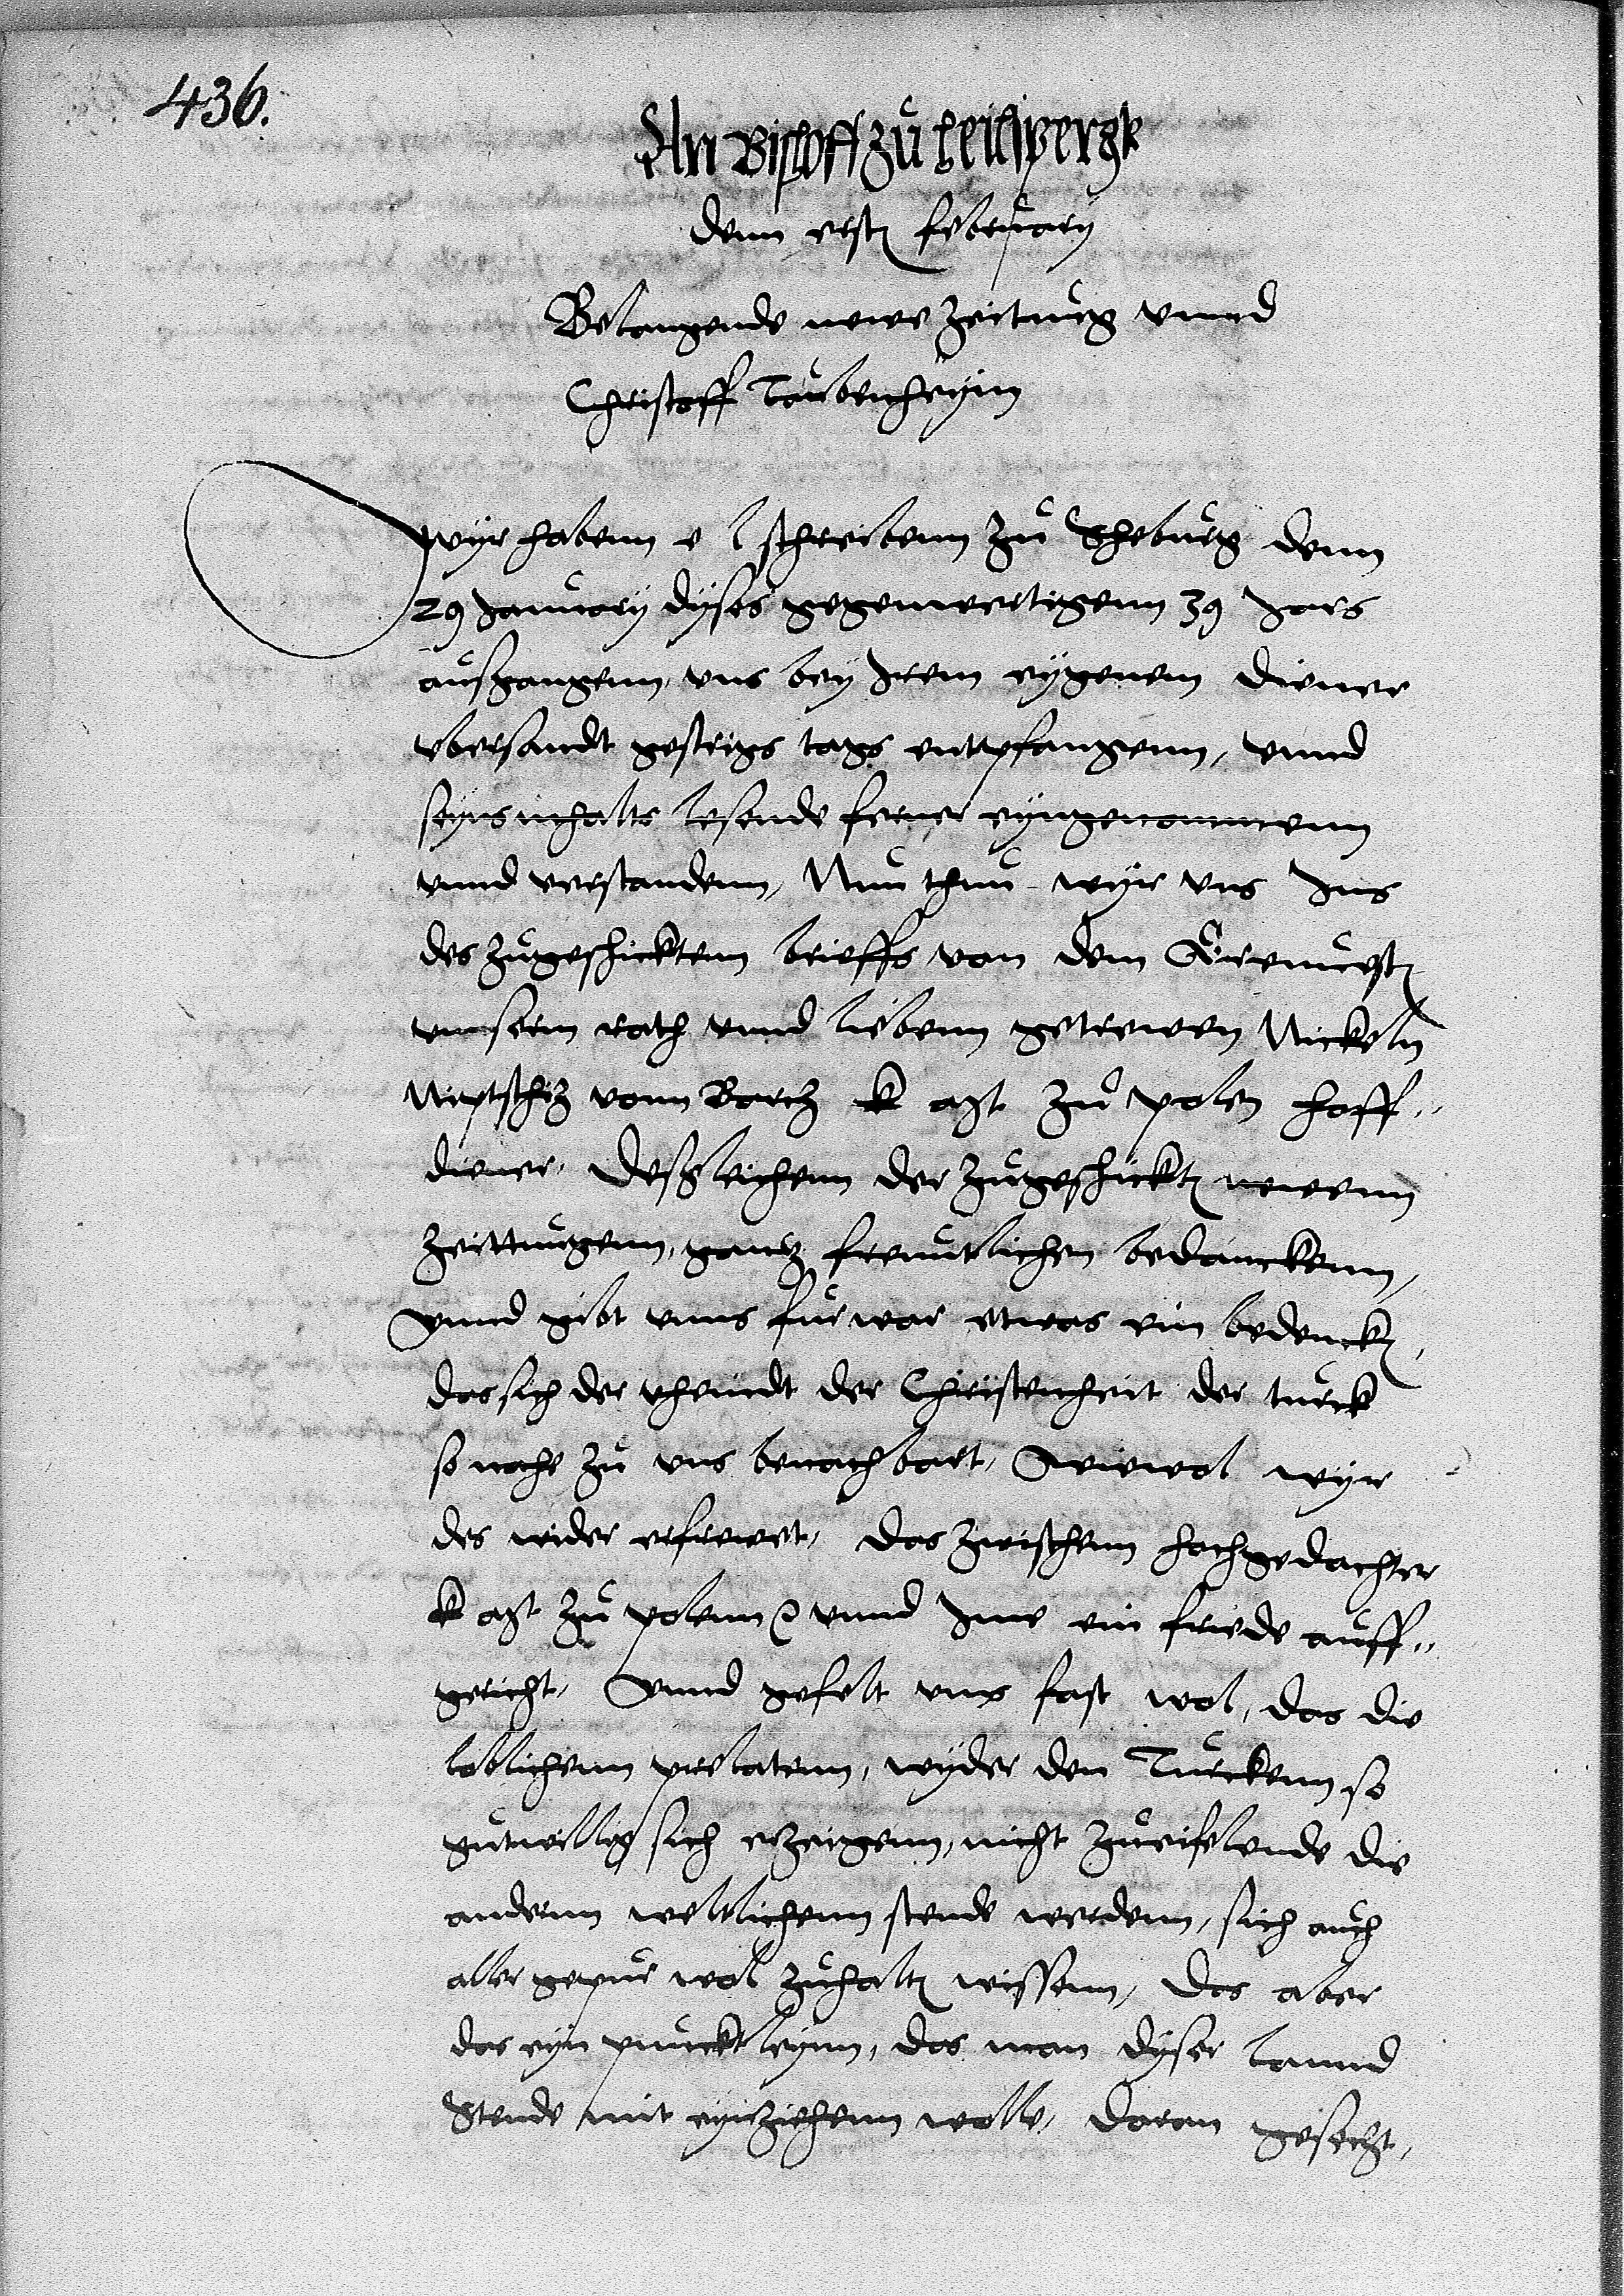 436.
An Bischoff zu heilspergk
denn erstenn february
Belangende newe zeitung vnnd
Christoff Taubenheÿm
Wyr habenn e l schreibenn zu Sheburg denn
29 January dyses gegenwertigenn 39 Jars
außgangenn, vns bey Irem eygenem diener
vbersandt gestrigs tags entpfangenn, vnnd
seyns inhalts lesende ferner eyngenommenn
vnnd verstandenn, Nun thun wyr vns Ins
des zugeschicktenn brieffs, von dem Erenuesten
vnserm rath vnnd liebenn getrewen Nickeln
Niptschitz vonn k mt zu polen hoff„
diener, Desgleichenn der zugeschickten newenn
zeittungenn, gantz freuntlichen bedanckenn,
Vnnd gibt vnns fur war etwas ein bedencken,
das sich der vheindt der Christenheit der turck
so nahe zu vns benachbart, Wiewol wyr
des wider erfrewet, das zwischenn hochgedachter
k mt zu polenn vnnd Ime ein friede auff„
gericht, Vnnd gefelt vns fast wol, das die
loblichenn prelatenn, wyder den Turckenn so
gutwillig sich erzeigenn, nicht zweifelende die
andernn weltlichenn stende werdenn, sich auch
aller gepur wol zuhalten wissenn, Das aber
das eyn punctleynn, das man dyser lannd
Stende mit eynziehenn wolle, daran gesecht,